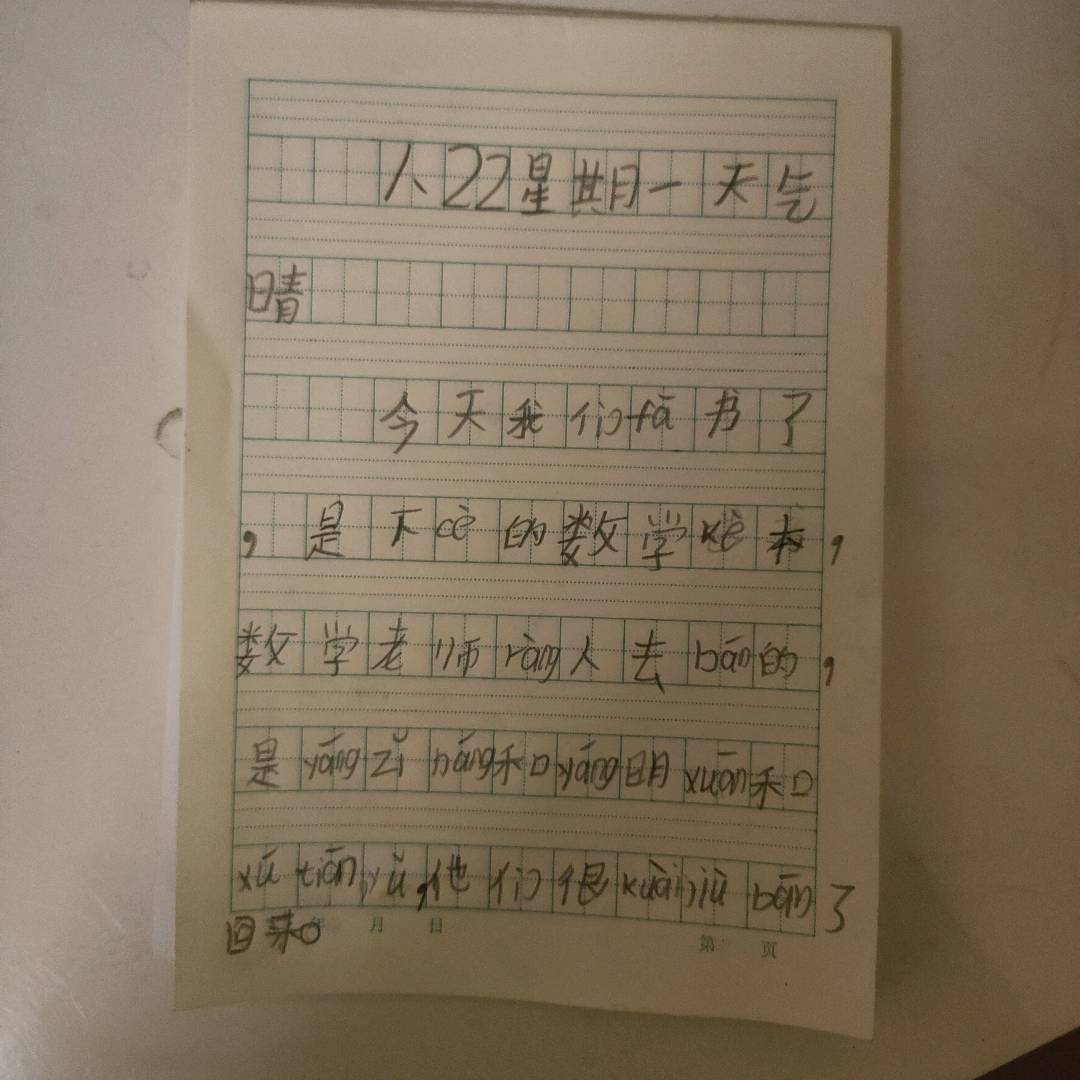 人22星期一天气
晴
今天我们fā书了
，是下cè的数学kè本，
数学老师ràng人去bān的，
是yáng zǐ háng和yáng明xuān和
xú tiān yǔ，他们很kuài jiù bān了
回来。
年 月 日 第 页